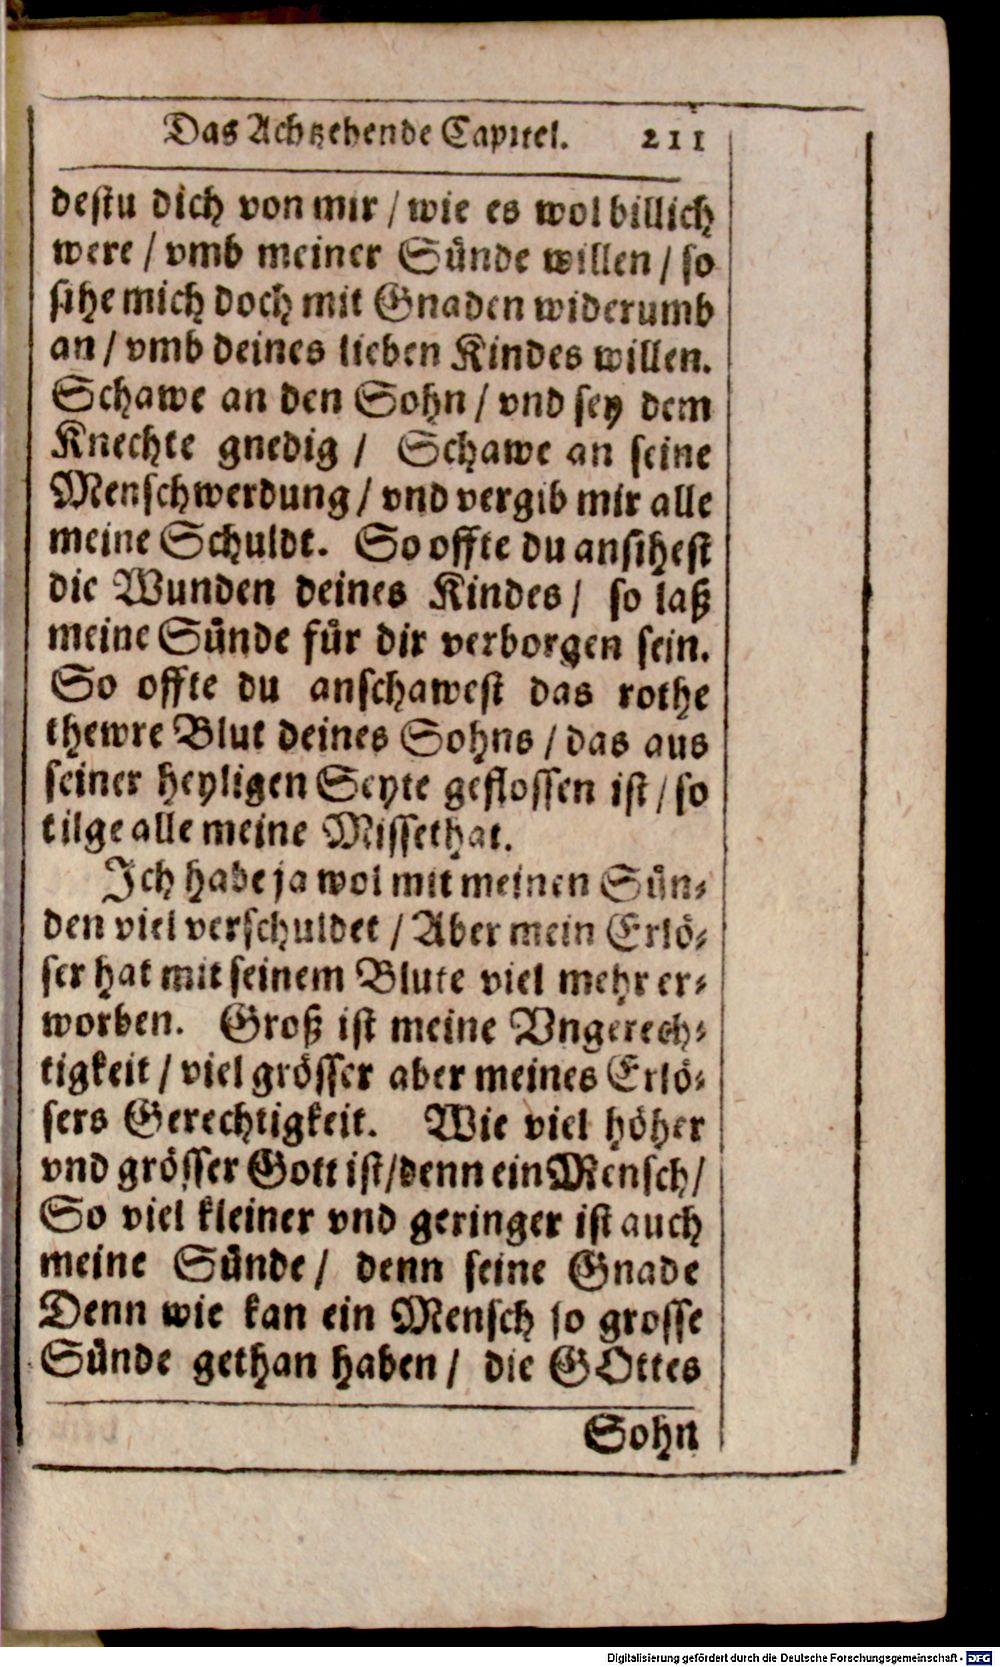 Das Achtzehende Capitel. 211
destu dich von mir / wie es wol billich
were / vmb meiner Sünde willen / so
sihe mich doch mit Gnaden widerumb
an / vmb deines lieben Kindes willen.
Schawe an den Sohn / vnd sey dem
Knechte gnedig / Schawe an seine
Menschwerdung / vnd vergib mir alle
meine Schuldt. So offte du ansihest
die Wunden deines Kindes / so laß
meine Sünde für dir verborgen sein.
So offte du anschawest das rothe
thewre Blut deines Sohns / das aus
seiner heyligen Seyte geflossen ist / so
tilge alle meine Missethat.
Ich habe ja wol mit meinen Sün-
den viel verschuldet / Aber mein Erlö-
ser hat mit seinem Blute viel mehr er-
worben. Groß ist meine Vngerech-
tigkeit / viel grösser aber meines Erlö-
sers Gerechtigkeit. Wie viel höher
vnd grösser Gott ist / denn ein Mensch /
So viel kleiner vnd geringer ist auch
meine Sünde / denn seine Gnade
Denn wie kan ein Mensch so grosse
Sünde gethan haben / die GOttes
Sohn
Digitalisierung gefördert durch die Deutsche Forschungsgemeinschaft - DFG